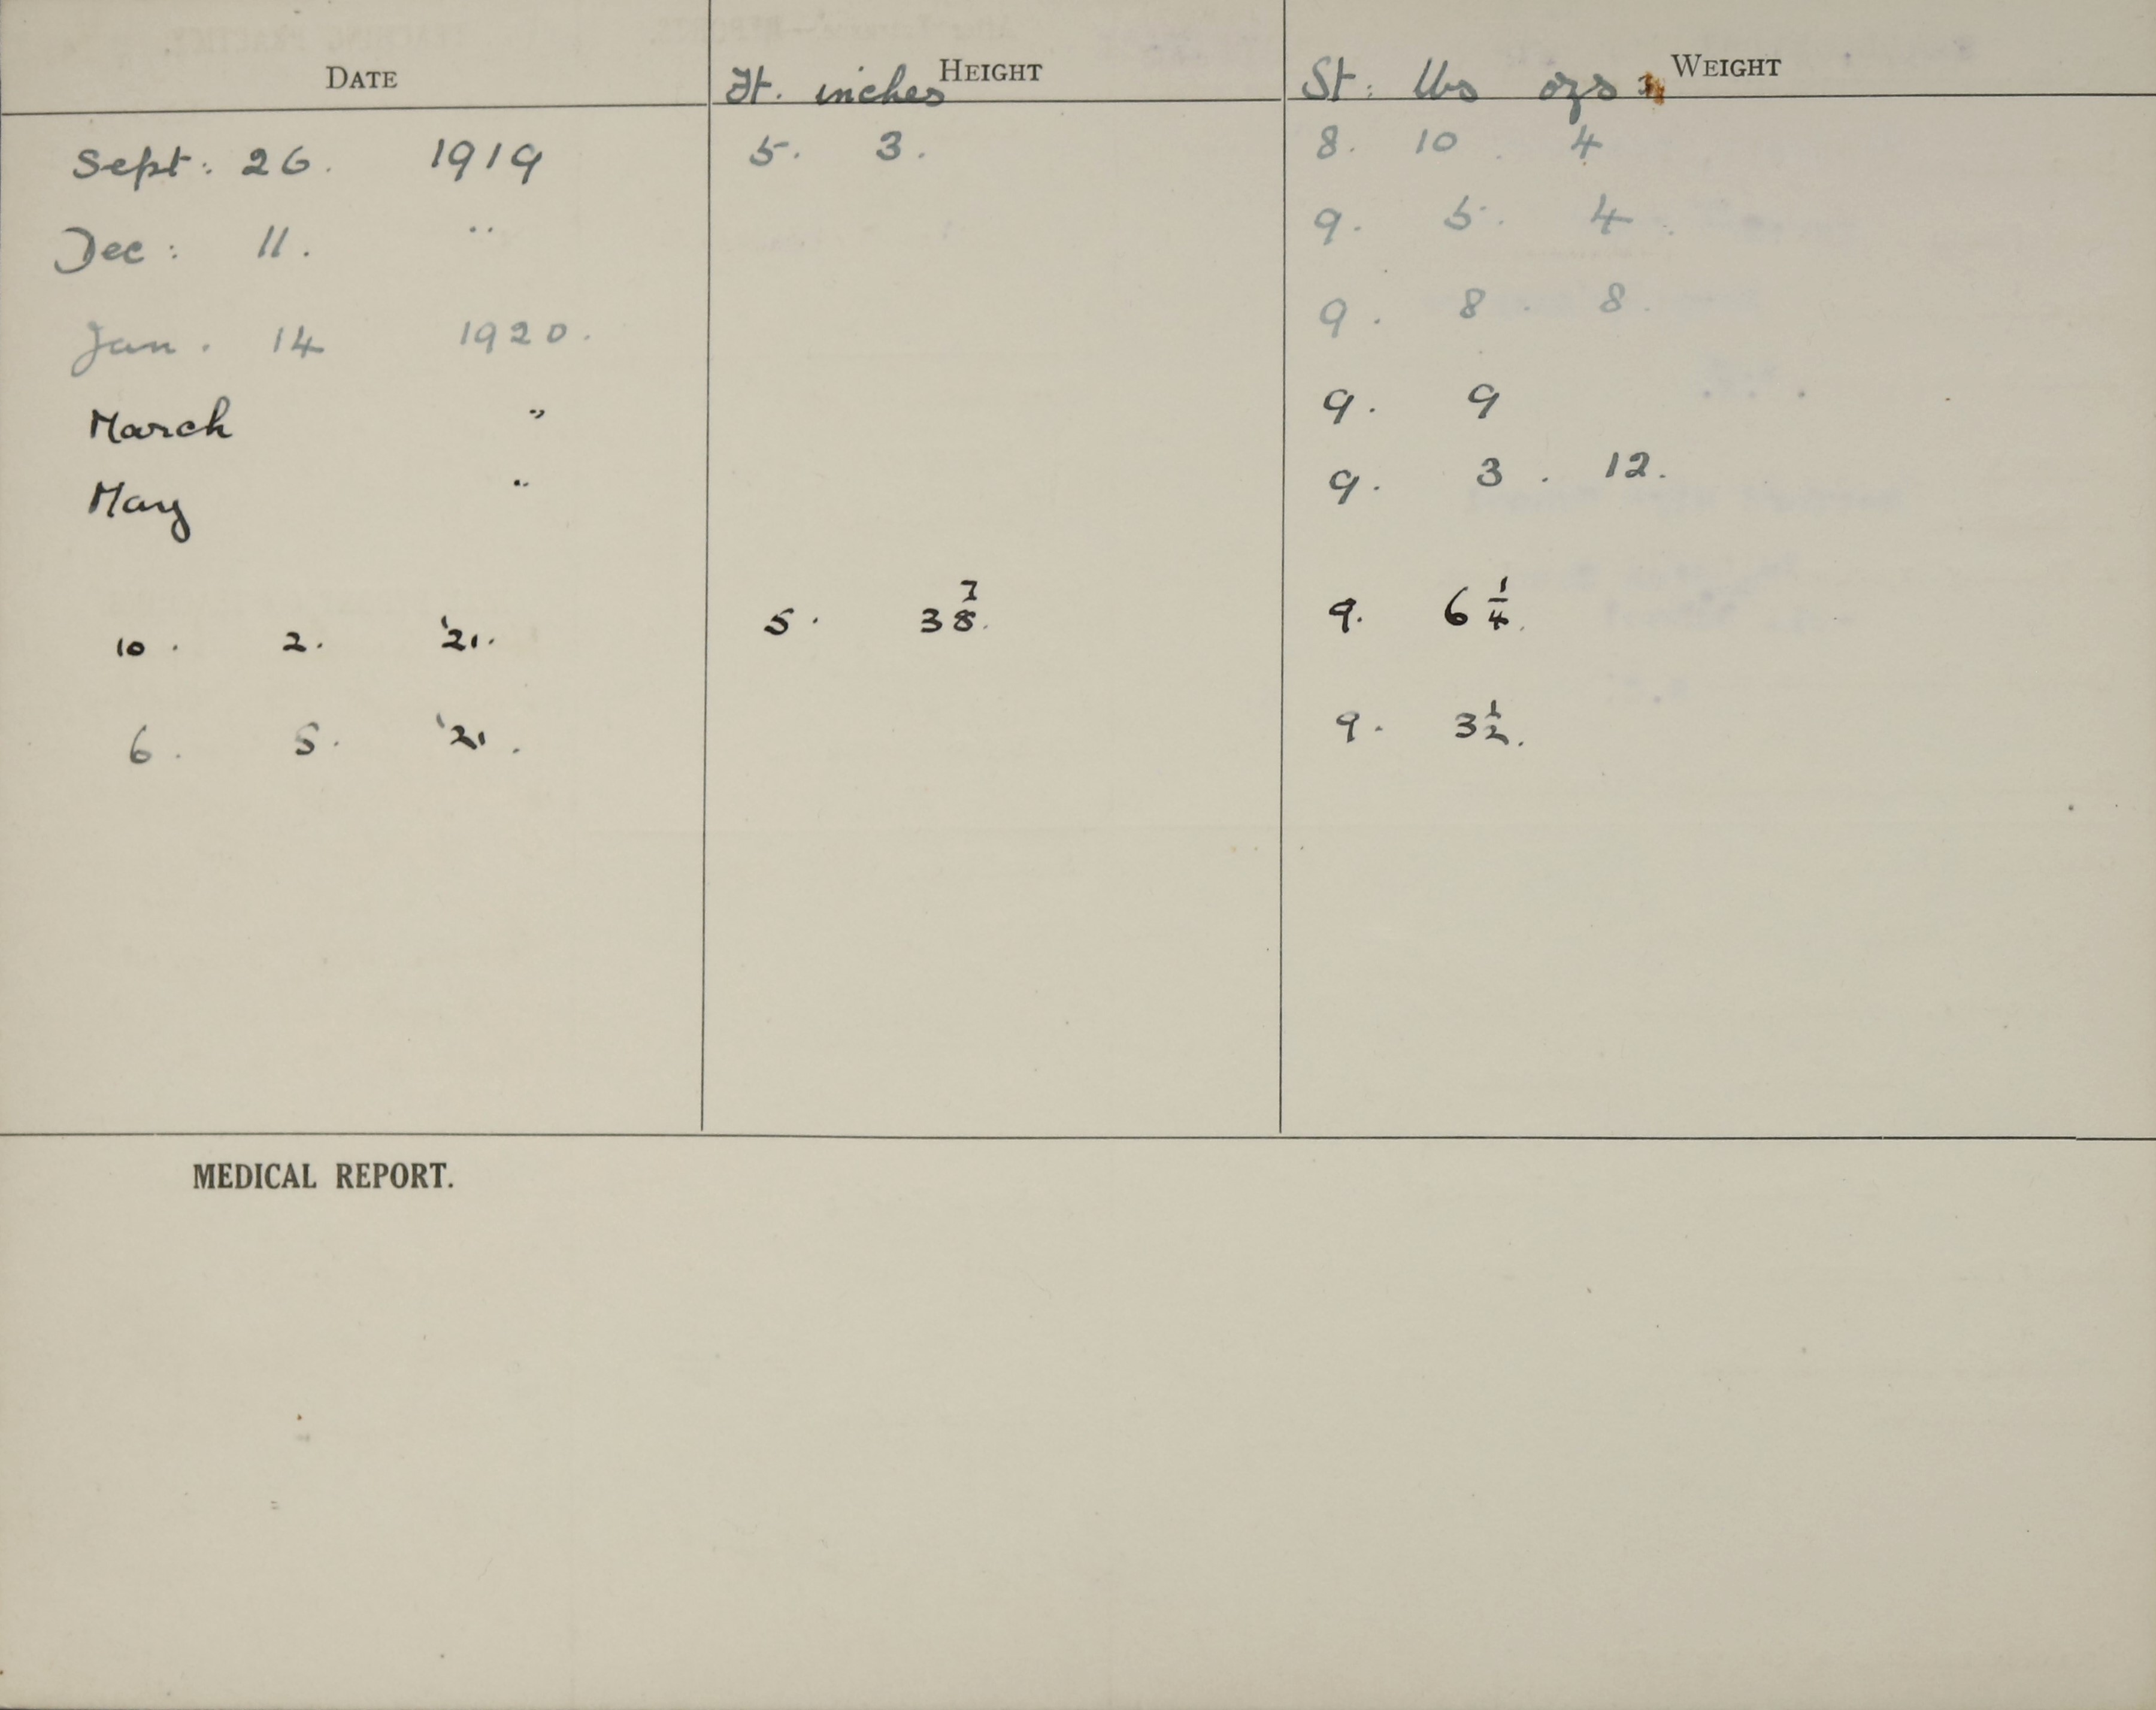 DATE Ft. inches HEIGHT St: lbs ozs WEIGHT
Sept: 26. 1919 5. 3. 8. 10. 4
Dec: 11. " 9. 5. 4.
Jan. 14 1920. 9. 8. 8.
March " 9. 9
May " 9. 3. 12.
10. 2. '21. 5. 3 7/8. 9. 6 1/4.
6. 5. '21. 9. 3 1/2.
MEDICAL REPORT.